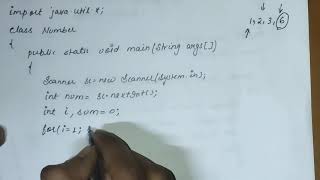 import java util *;
class Number
1, 2, 3, 6
{
public static void main(String args[])
{
Scanner sc=new Scanner(System.in);
int num= sc.nextInt();
int i, sum=0;
for(i=1;